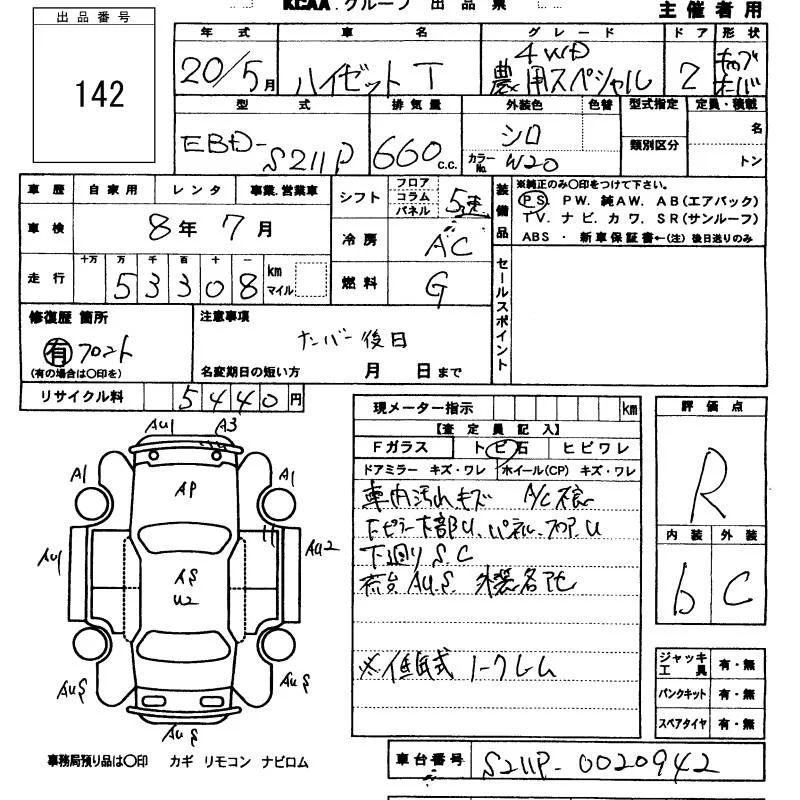 KCAA.グループ 出品票
主催者用
出品番号
142
年式 車名 グレード ドア 形状
20/5月 ハイゼット T 4WD 農用スペシャル 2
型式 排気量 外装色 色替 型式指定 定員・積載
EBD-S211P 660c.c. シロ カラーNo. W20 類別区分 名 トン
車歴 自家用 レンタ 事業.営業車
車検 8年7月
走行 十万 万 千 百 十 一
53308 km マイル
シフト フロア コラム パネル 5速
冷房 AC
燃料 G
装備品
※純正のみ〇印をつけて下さい。
PS. PW. 純AW. AB(エアバック)
TV. ナビ. カワ. SR(サンルーフ)
ABS ・ 新車保証書←(注) 後日送りのみ
セールスポイント
修復歴 箇所
有 フロント
(有の場合は〇印を)
注意事項
ナンバー後日
名変期日の短い方 月 日 まで
リサイクル料 5440円
AU1 A3
A1 AP A1
AU1 AS U2 AU2
AUS AUS
AUS
事務局預り品は〇印 カギ リモコン ナビロム
現メーター指示 km
【査定員記入】
Fガラス トビ石 ヒビワレ
ドアミラー キズ・ワレ ホイール(CP) キズ・ワレ
車内汚れキズ A/C
Fピラー下部U、パネル、フロアU
下廻りSC
荷台AU.S.
評価点
R
内装 外装
b C
ジャッキ 工具 有・無
パンクキット 有・無
スペアタイヤ 有・無
車台番号 S211P-0020942